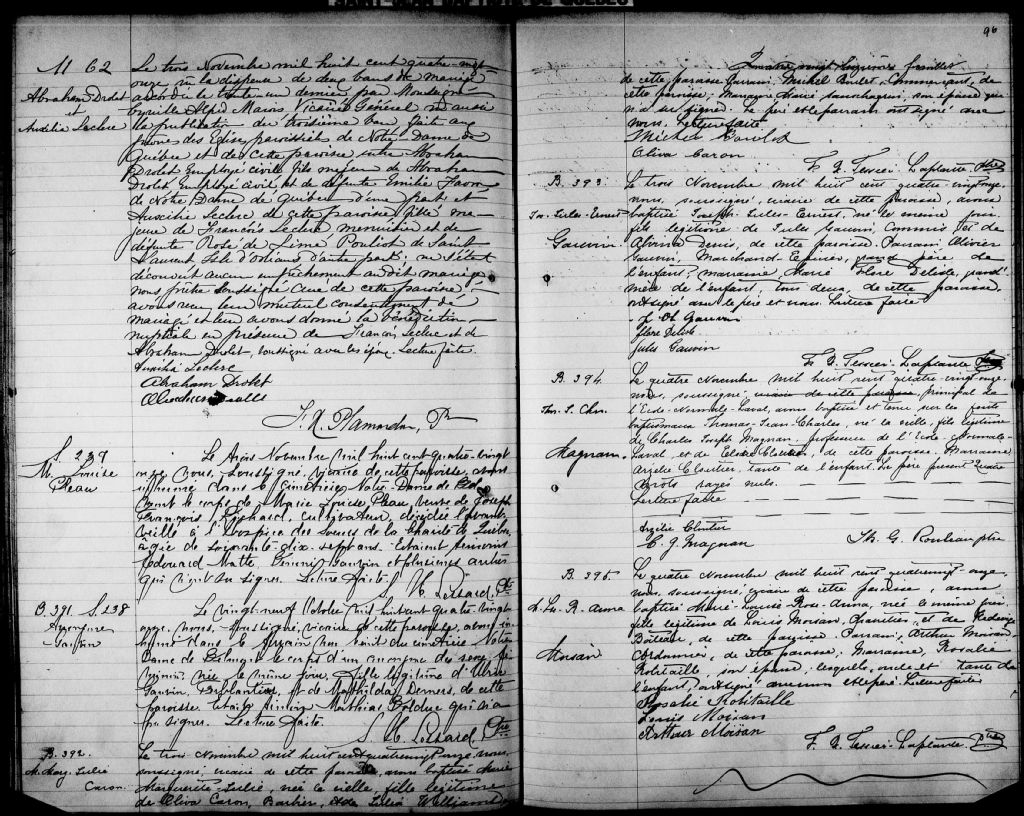 SAINT-JEAN BAPTISTE DE QUEBEC
M 62
Abraham Drolet
et
Auxilia Leclerc
Le trois Novembre mil huit cent quatre-vingt
onze vu la dispense de deux bans de mariage
accordée le trente un dernier par Monseigneur
Cyrille Alfred Marois, Vicaire Général vu aussi
la publication du troisième ban fait aux
prônes des Eglises paroissiales de Notre Dame de
Québec et de cette paroisse entre Abraham
Drolet Employé civil fils majeur de Abraham
Drolet Employé civil, et de défunte Emilie
de Notre Dame de Québec d'une part et
Auxilia Leclerc de cette paroisse fille ma-
jeure de François Leclerc menuisier et de
défunte Rose de Lima Pouliot de Saint
Laurent Isle d'Orléans d'autre part; ne s'étant
découvert aucun empêchement au dit mariage
nous prêtre soussigné Curé de cette paroisse
avons reçu leur mutuel consentement de
mariage et leur avons donné la bénédiction
nuptiale en présence de François Leclerc et de
Abraham Drolet, soussignés avec les époux. Lecture faite.
Auxilia Leclerc
Abraham Drolet
F. X. Plamondon, Ptre
S. 239
M. Louise
Pleau
Le trois Novembre mil huit cent quatre-vingt
onze, nous, soussigné, vicaire de cette paroisse, avons
inhumé dans le cimetière Notre-Dame de Bel-
mont le corps de Marie Louise Pleau veuve de Joseph
François Richard, cultivateur, décédée l'avant
veille à l'hospice des Soeurs de la Charité de Québec,
âgée de soixante-dix-sept ans. Etaient témoins
Edouard Matte, Gauvin et plusieurs autres
qui n'ont su signer. Lecture faite.
Lessard, Ptre
B. 391 S. 238
Anonyme
Gauvin
Le vingt-neuf Octobre mil huit cent quatre-vingt
onze, nous, soussigné, vicaire de cette paroisse, avons in-
humé dans le terrain non bénit du cimetière Notre
Dame de Belmont le corps d'un anonyme du sexe fé-
minin née le même jour, fille légitime d'
Gauvin, ferblantier, et de Mathilda Demers, de cette
paroisse. Etait témoin Mathias Bolduc qui n'a
pu signer. Lecture faite.
Lessard, Ptre
B. 392.
M. Marg. Lselie
Caron.
Le trois Novembre mil huit cent quatre vingt onze nous,
soussigné, vicaire de cette paroisse, avons baptisé Marie
Marguerite-Leslie, née la veille, fille légitime
de Oliva Caron, Barbier, et de Julia Williams
96
Quatre vingt seizième feuillet
de cette paroisse. Parrain, Michel Boulet, Commerçant, de
cette paroisse; Marraine, Marie son épouse qui
n'a su signer. Le père et le parrain ont signé avec
nous. Lecture faite
Michel Boulet
Oliva Caron
F. X. Tessier-Laplante Ptre
B. 393
Jos. Jules-Ernest
Gauvin
Le trois Novembre mil huit cent quatre-vingt onze,
nous, soussigné, vicaire de cette paroisse, avons
baptisé Joseph-Jules-Ernest, né le même jour,
fils légitime de Jules Gauvin, Commis et de
Alvina Denis, de cette paroisse. Parrain, Olivier
Gauvin, Marchand-Epicier, grand père de
l'enfant; marraine, Marie Flore Delisle, grand
mère de l'enfant, tous deux de cette paroisse,
ont signé avec le père et nous. Lecture faite.
Gauvin
Flore Delisle
Jules Gauvin
F. X. Tessier-Laplante Ptre
B. 394.
Thos. J. Chs.
Magnan
Le quatre Novembre mil huit cent quatre-vingt-onze,
nous, soussigné, vicaire de cette paroisse principal de
l'Ecole-Normale-Laval, avons baptisé et tenu sur les fonts
baptismaux Thomas-Jean-Charles, né la veille, fils légitime
de Charles Joseph Magnan, professeur de l'Ecole-Normale-
Laval, et de Cloutier, de cette paroisse. Marraine
Azélie Cloutier, tante de l'enfant. Le père présent. Quatre
mots rayés nuls.
Lecture faite
Azélie Cloutier
C. J. Magnan
Th. G. Rouleau ptre
B. 395.
M. Ls. R. Anna
Morsan
Le quatre Novembre mil huit cent quatre vingt onze,
nous, soussigné, vicaire de cette paroisse, avons
baptisé Marie-Louise Rose-Anna, née le même jour
fille légitime de Louis Moisan, Charretier, et de Hedwige
Boiteau, de cette paroisse. Parrain, Arthur Moisan
Cordonnier, de cette paroisse; Marraine, Rosalie
Robitaille, son épouse, lesquels, oncle et tante de
l'enfant, ont signé avec nous et le père. Lecture faite
Rosalie Robitaille
Louis Moisan
Arthur Moisan
F. X. Tessier-Laplante Ptre